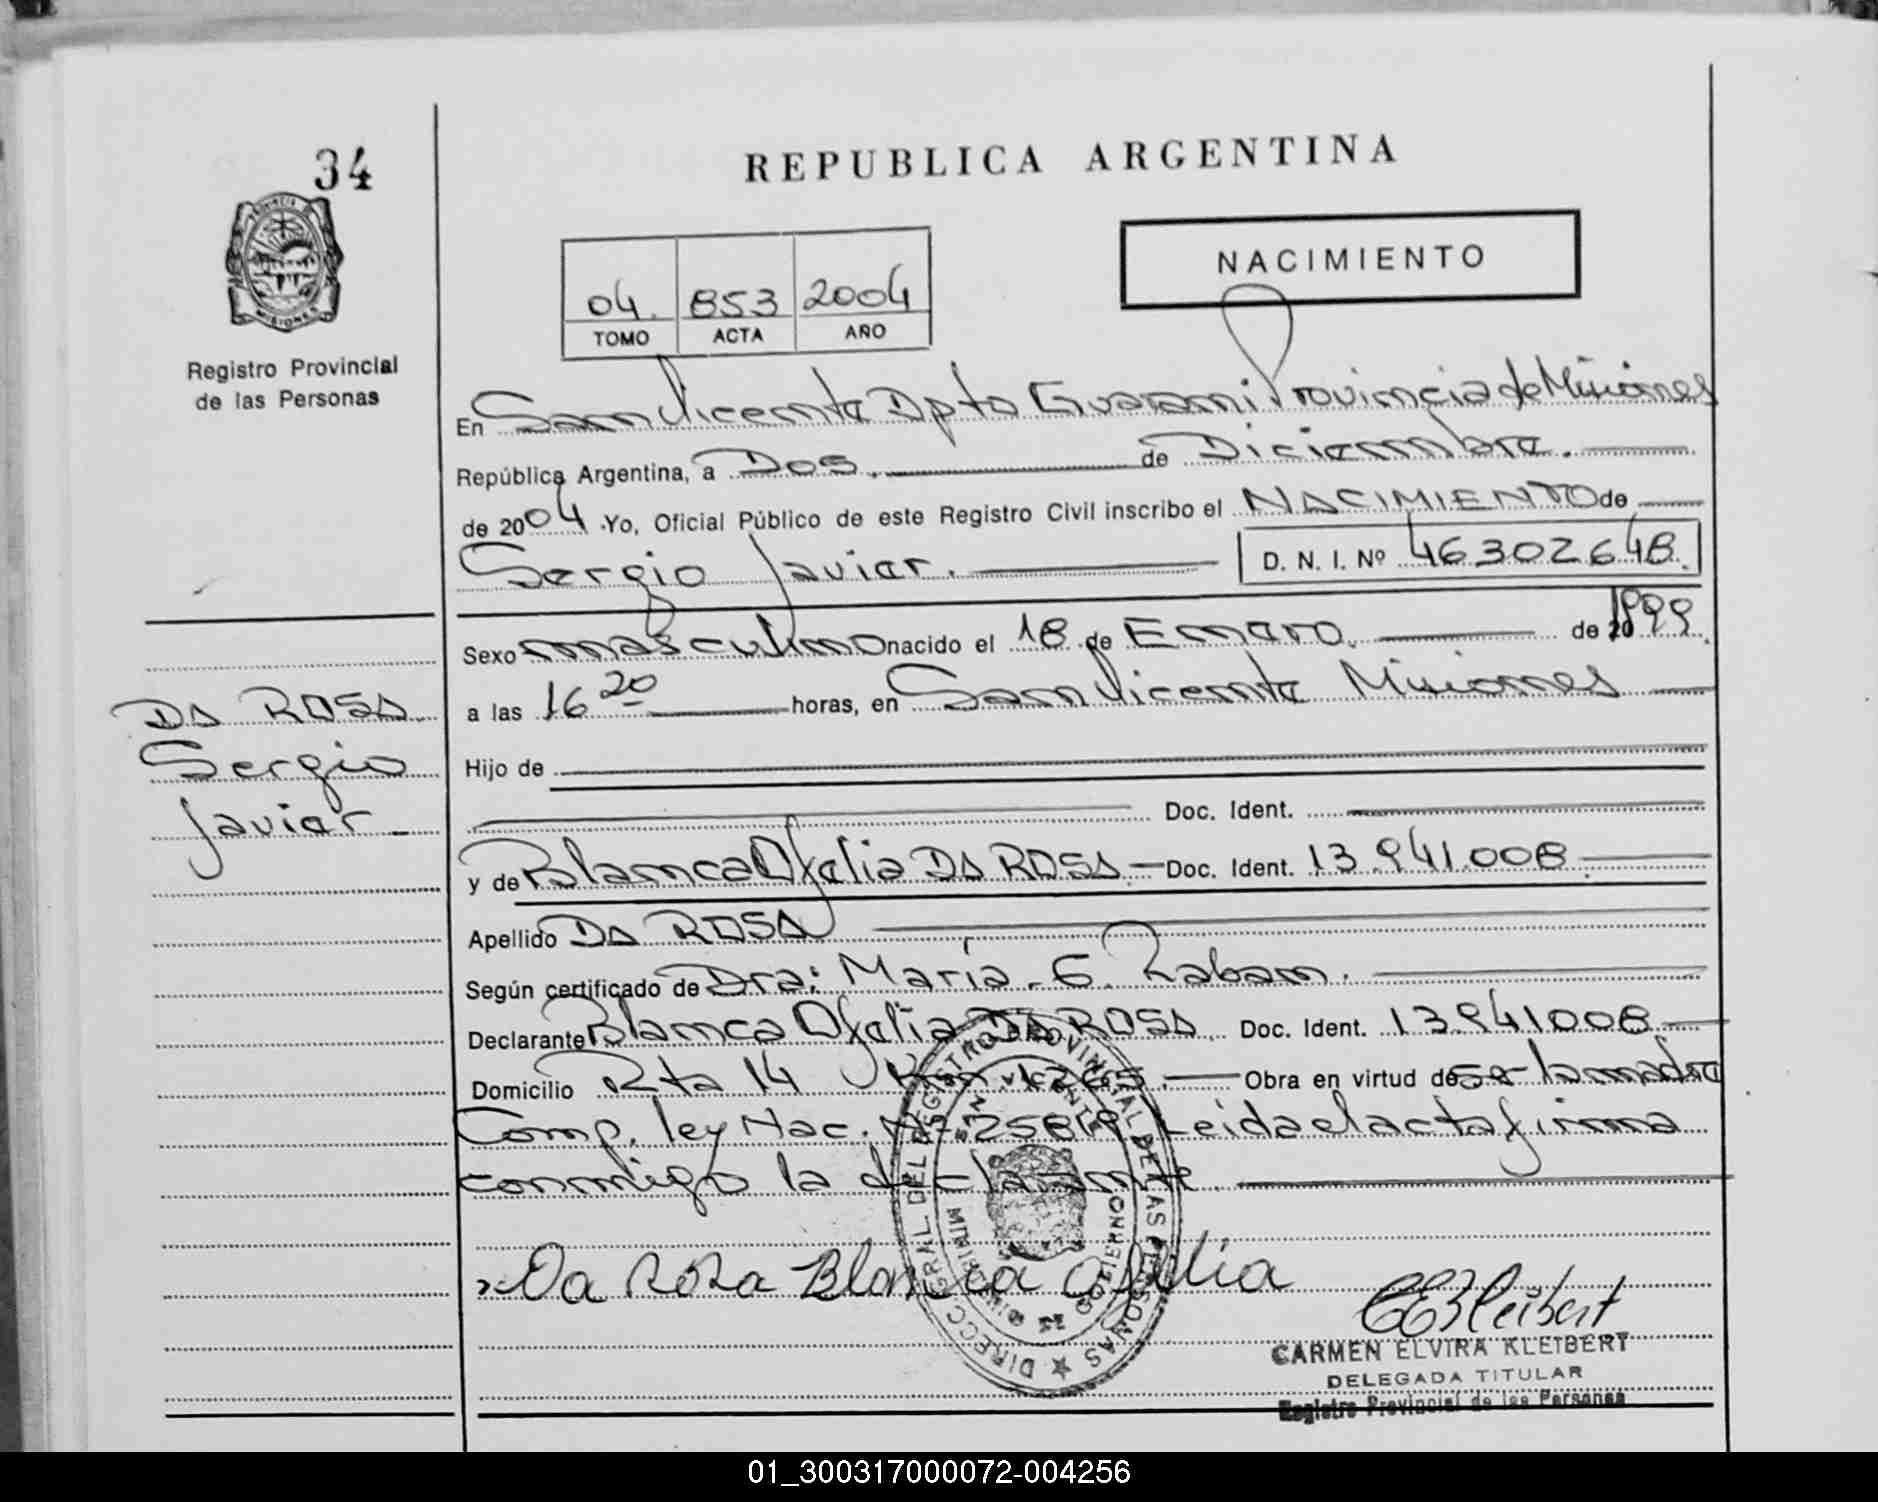 34
REPUBLICA ARGENTINA
NACIMIENTO
04. 853 2004
TOMO ACTA AÑO
Registro Provincial
de las Personas
En San Vicente Dpto Guarani Provincia de Misiones
República Argentina, a Dos. de Diciembre.
de 2004 Yo, Oficial Público de este Registro Civil inscribo el NACIMIENTO de
Sergio Javier. D. N. I. Nº 46302648.
Sexo masculino nacido el 18 de Enero. de 1999.
a las 16 20 horas, en San Vicente Misiones
Hijo de
Doc. Ident.
y de Blanca Ofelia DA ROSA. Doc. Ident. 13.941.008
Apellido DA ROSA
Según certificado de Dra: María. E. Laban.
Declarante Blanca Ofelia DA ROSA Doc. Ident. 13941008
Domicilio Rta 14 Km 1265. Obra en virtud de ser la madre
Comp. ley Nac. Nº 25819 Leida el acta firma
conmigo la declarante.
Da Rosa Blanca Ofelia
DA ROSA
Sergio
Javier
DIRECC GRAL DEL REGISTRO PROVINCIAL DE LAS PERSONAS
SAN VICENTE
GOBIERNO
CARMEN ELVIRA KLEIBERT
DELEGADA TITULAR
Registro Provincial de las Personas
01_300317000072-004256